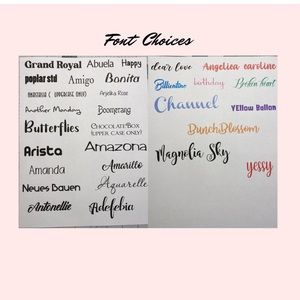 Font Choices
Grand Royal Abuela Happy
poplar std Amigo Bonita
(uppercase only) Anjelika Rose
Another Monday Boomerang
Butterflies ChocolateBox
(upper case only)
Arista Amazona
Amanda Amarillo
Neues Bauen Aquarelle
Antonellie Adefebia
dear love Angelica caroline
Billientine birthday Broken heart
Channel Yellow Ballon
BunchBlossom
Magnolia Sky
yessy